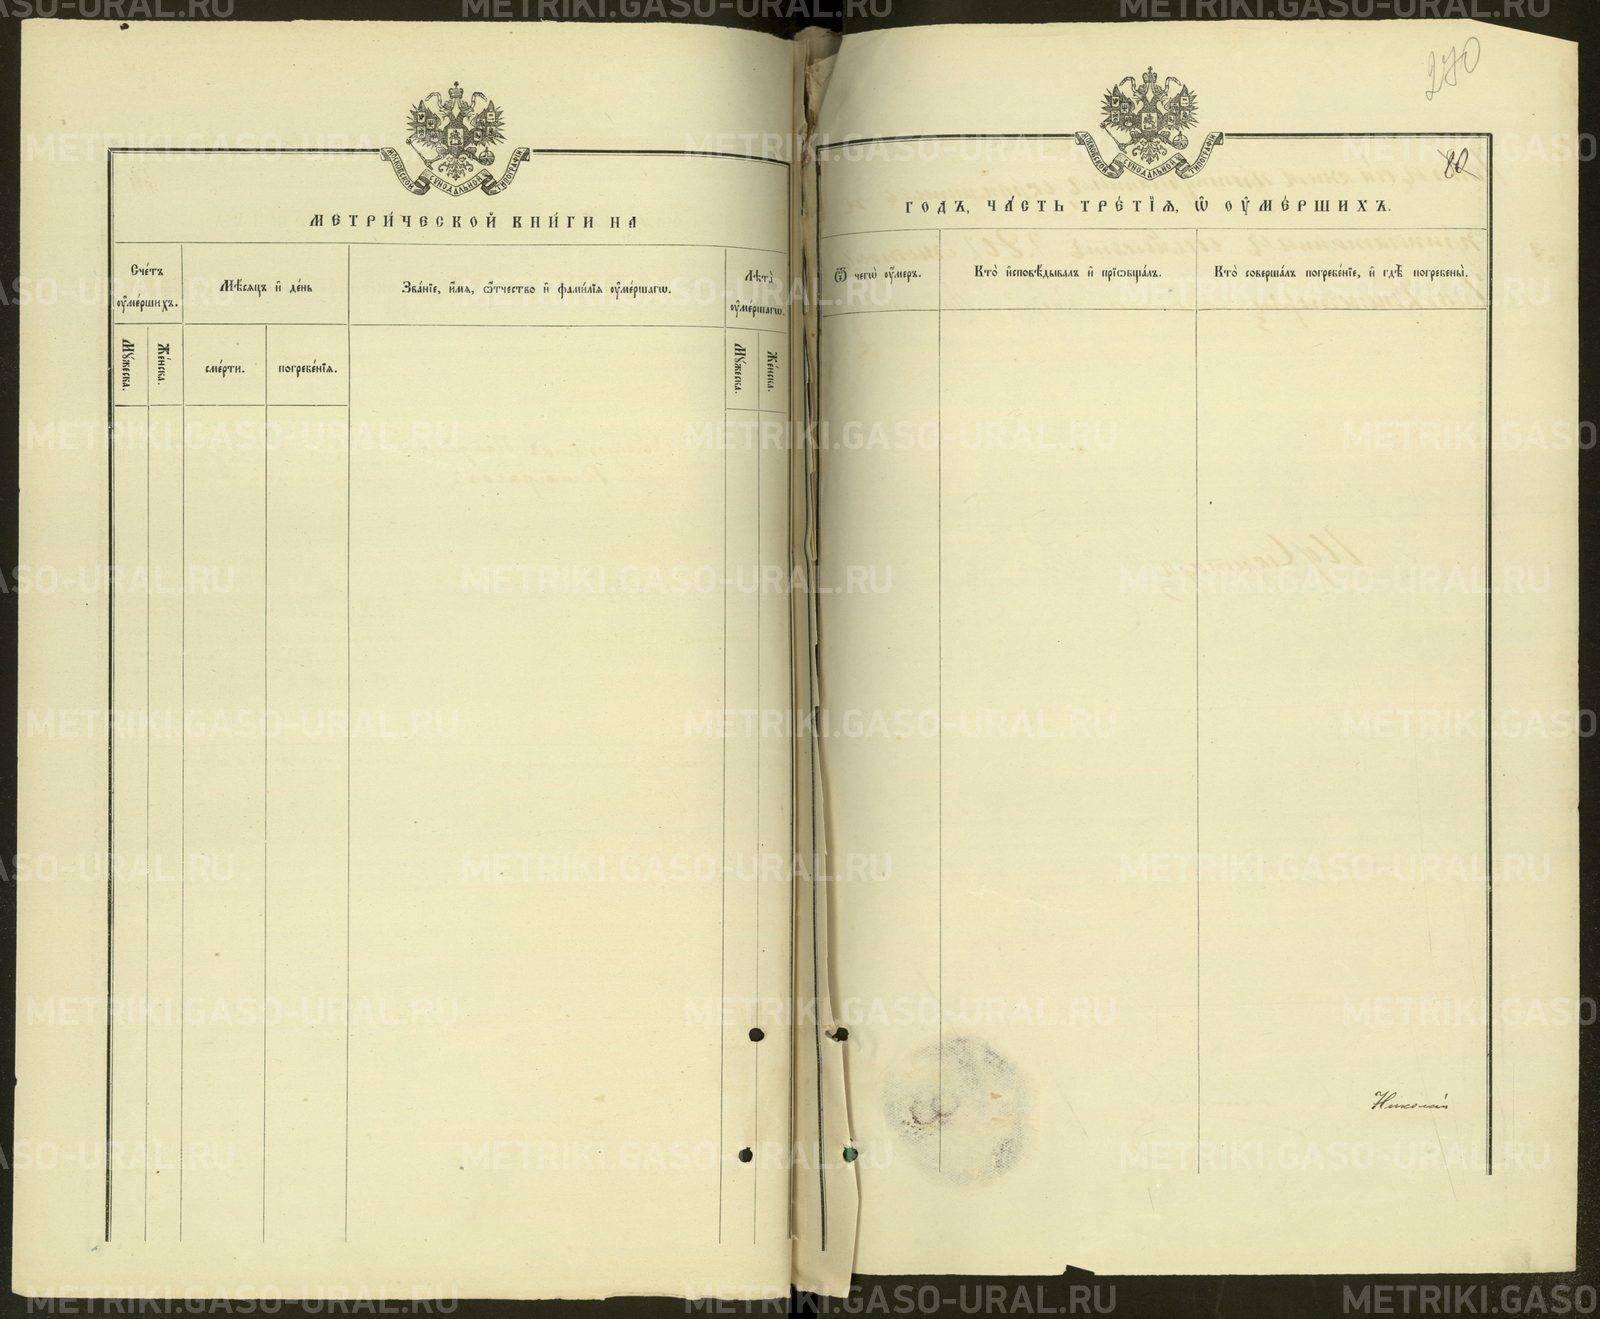 270
80
МОСКОВСКОЙ СѴНОДАЛЬНОЙ ТИПОГРАФІИ
МЕТРИ́ЧЕСКОЙ КНИ́ГИ НА
Сче́тъ ᲂу҆ме́ршихъ.
Мѣ́сяцъ и҆ де́нь
Зва́нїе, и҆́мя, ѻ҆́тчество и҆ фами́лїя ᲂу҆ме́ршагѡ.
Лѣ́та ᲂу҆ме́ршагѡ.
Мꙋ́жеска.
Же́нска.
сме́рти.
погребе́нїя.
Мꙋ́жеска.
Же́нска.
МОСКОВСКОЙ СѴНОДАЛЬНОЙ ТИПОГРАФІИ
ГО́ДЪ, ЧА́СТЬ ТРЕ́ТЇЯ, Ѡ҆ ОУ҆МЕ́РШИХЪ.
Ѿ чегѡ̀ ᲂу҆́меръ.
Кто̀ и҆сповѣ́дывалъ и҆ прїѡбща́лъ.
Кто̀ соверша́лъ погребе́нїе, и҆ гдѣ̀ погребены̀.
Николай
METRIKI.GASO-URAL.RU